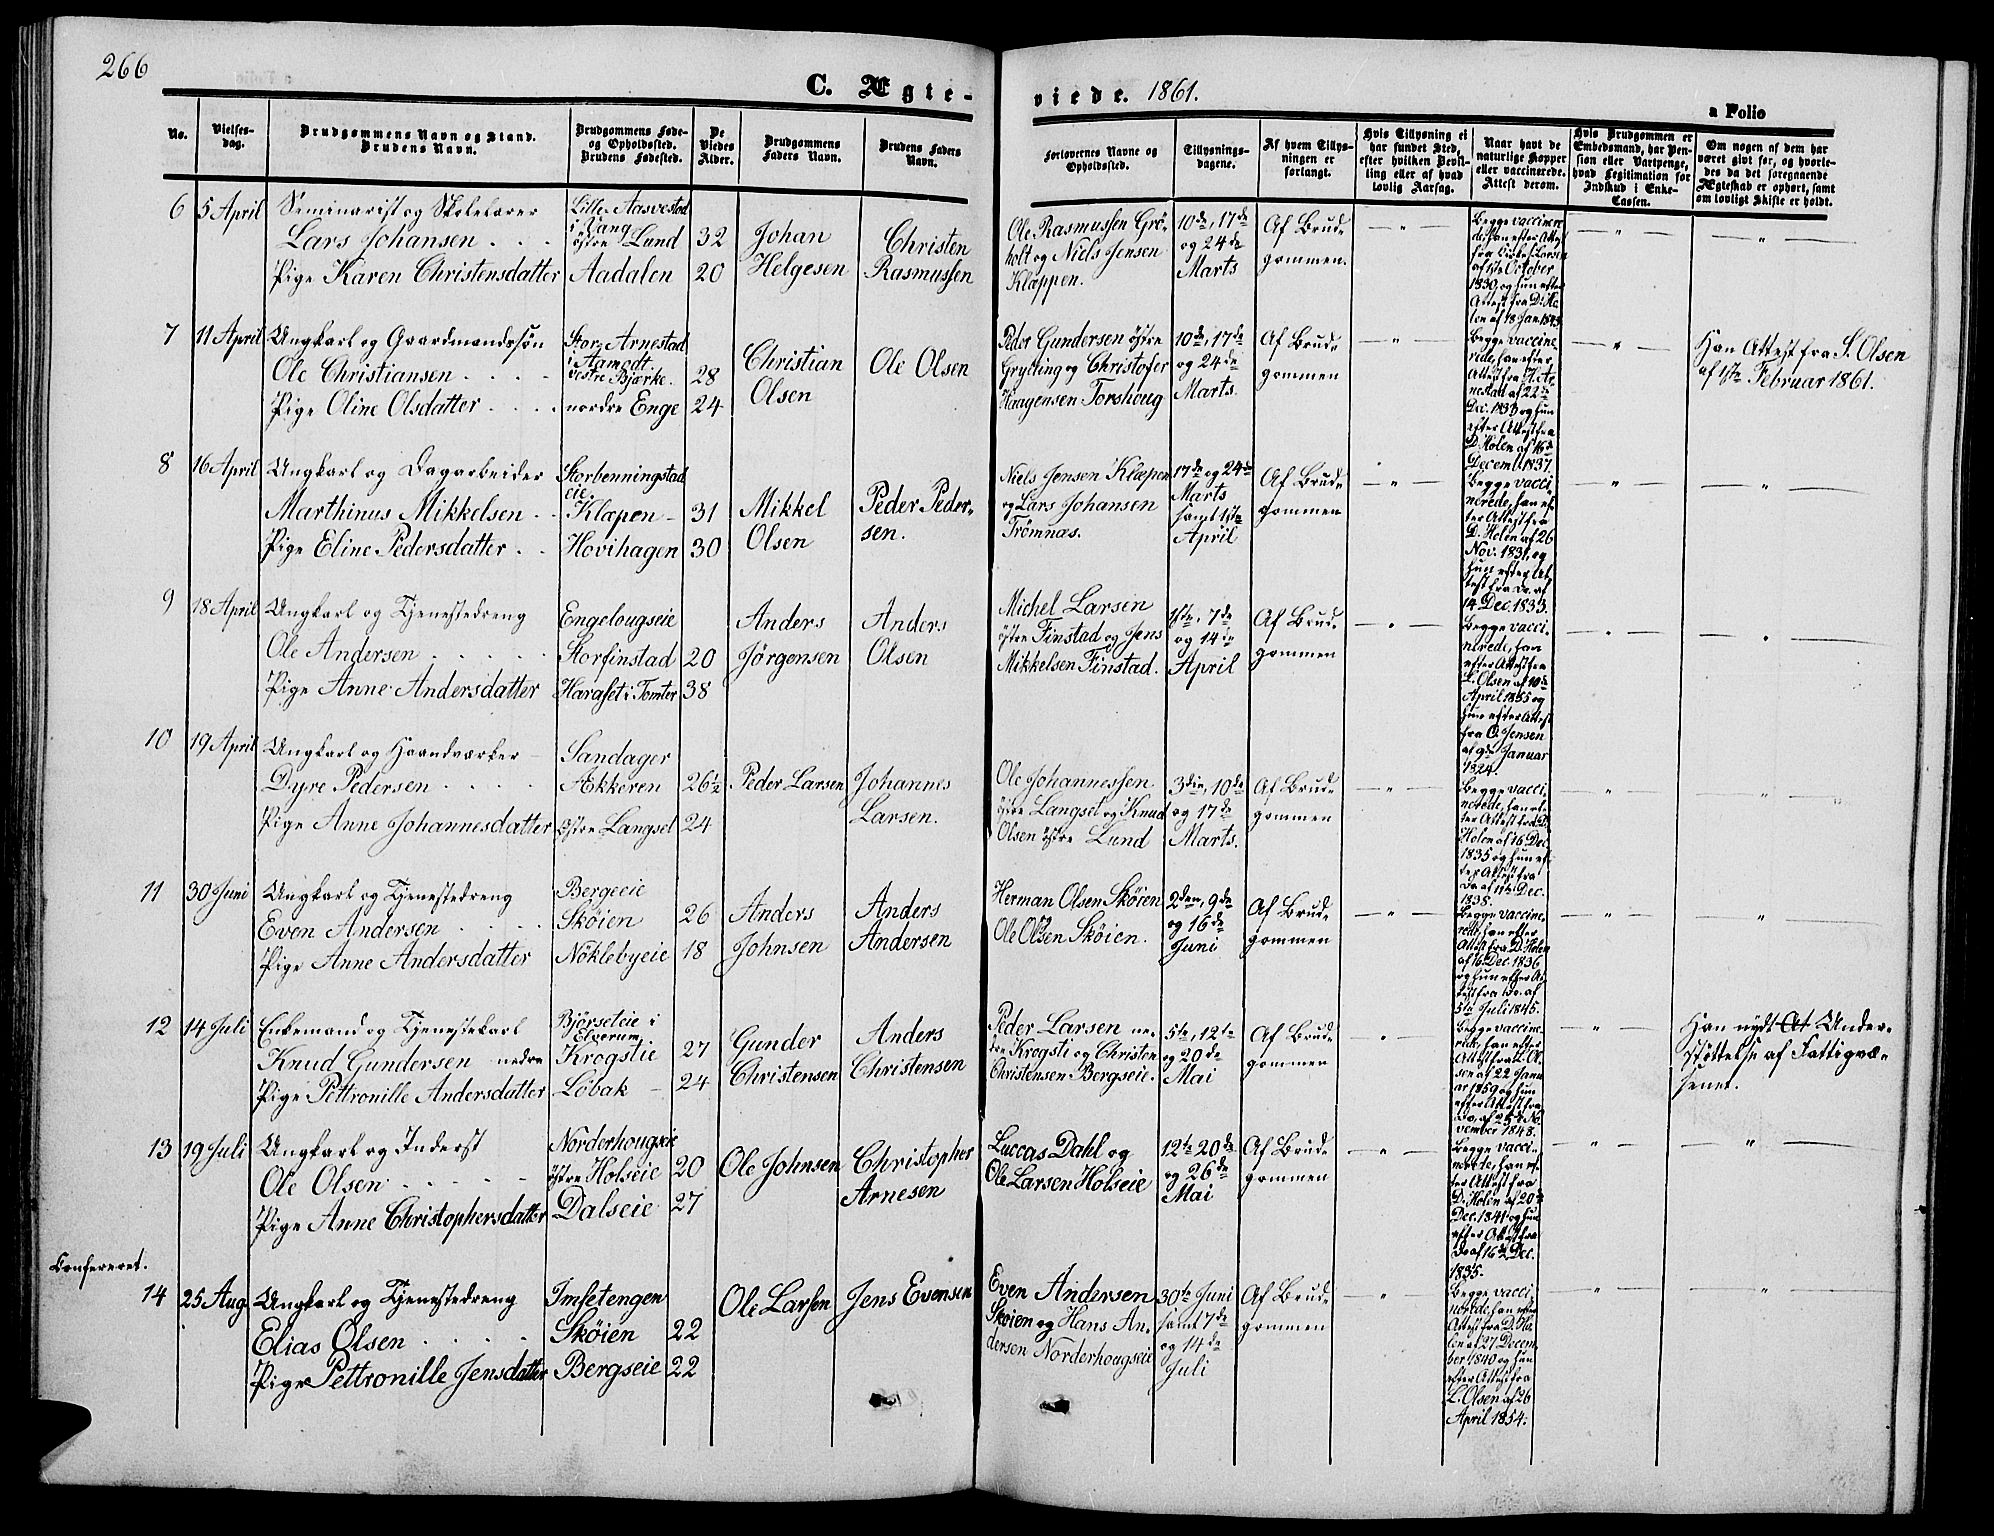 266
C. Ægte-
viede. 1861.
a Folio
No.
Vielses-
dag.
Brudgommens Navn og Stand.
Brudens Navn.
Brudgommens Føde-
og Opholdssted.
Brudens Fødested.
De
Viedes
Alder.
Brudgommens
Faders Navn.
Brudens Faders
Navn.
Forlovernes Navne og
Opholdssted.
Tillysnings-
dagene.
Af hvem Tillys-
ningen er
forlangt.
Hvis Tillysning ei
har fundet Sted,
efter hvilken Bevil-
ling eller af hvad
lovlig Aarsag.
Naar havt de
naturlige Kopper
eller vaccinerede.
Attest derom.
Hvis Brudgommen er
Embedsmand, har Pen-
sion eller Vartpenge,
hvad Legitimation for
Indskud i Enke-
Cassen.
Om nogen af dem har
været givt før, og hvorle-
des da det foregaaende
Ægteskab er ophørt, samt
om lovligt Skifte er holdt.
6 5 April Seminarist og Skolelærer
Lars Johansen
Pige Karen Christensdatter
Lille Aasvestad
i Vang
østre Lund 32
Aadalen 20
Johan
Helgesen
Christen
Rasmussen
Ole Rasmussen Grø-
holt og Niels Jensen
Klæppen.
10de, 17de
og 24de
Marts
Af Brud-
gommen.
Begge vaccine-
rede, han efter Attest
fra Lars Larsen
af 1ste October
1830, og hun efter
Attest fra D. Ho-
len af 18 Jan. 1843.
7 11 April Ungkarl og Gaardmandssøn
Ole Christiansen
Pige Oline Olsdatter
Stor Arnestad
i Aamodt.
vestre Bjørke. 28
nordre Enge 24
Christian
Olsen
Ole Olsen
Peder Gundersen østre
Grytting og Christofer
Haagensen Torshoug
10de, 17de
og 24de
Marts.
Af Brud-
gommen
Begge vaccine-
rede, han efter
Attest fra H. Ar-
nestad af 22de
Dec. 1833 og hun
efter Attest fra
D. Holen af 16de
Decemb. 1837.
Han Attest fra S. Olsen
af 1ste Februar 1861.
8 16 April Ungkarl og Dagarbeider
Marthinus Mikkelsen
Pige Eline Pedersdatter
Storbenningstad
eie.
Klæpen 31
Hovihagen 30
Mikkel
Olsen
Peder Peder-
sen.
Niels Jensen Klæpen
og Lars Johansen
Trømnæs.
17de og 24de
Marts
samt 1ste
April
Af Brud-
gommen
Begge vacci-
nerede, han ef-
ter Attest fra
D. Holen af 26
Nov. 1831, og
hun efter At-
test fra do. af
14 Dec. 1833.
9 18 April Ungkarl og Tjenestedreng
Ole Andersen
Pige Anne Andersdatter
Engelougseie
Storfinstad 20
Haraset i Tomter 38
Anders
Jørgensen
Anders
Olsen
Michel Larsen
østre Finstad og Jens
Mikkelsen Finstad.
1ste, 7de
og 14de
April
Af Brud-
gommen
Begge vacci-
nerede, han
efter Attest fra
L. Olsen af 10de
April 1855 og
hun efter Attest
fra O. Jensen
af 9de Januar
1824.
10 19 April Ungkarl og Haandværker
Dyre Pedersen
Pige Anne Johannesdatter
Sandager
Ækkeren 26½
østre Langset 24
Peder Larsen
Johannes
Larsen.
Ole Johannessen
østre Langset og Knud
Olsen østre Lund
3die, 10de
og 17de
Marts.
Af Brud-
gommen
Begge vacci-
nerede, han ef-
ter Attest fra D.
Holen af 16 Dec.
1835 og hun ef-
ter Attest fra
Do af 11te Dec.
1838.
11 30 Juni Ungkarl og Tjenestedreng
Even Andersen
Pige Anne Andersdatter
Bergeeie
Skøien 26
Nøklebyeie 18
Anders
Johnsen
Anders
Andersen
Herman Olsen Skøien
og
Ole Olsen Skøien.
2den, 9de
og 16de
Juni
Af Brud-
gommen
Begge vaccine-
rede, han efter
Attest fra D. Holen
af 16 Dec. 1836
og hun efter At-
test fra do. af
5te Juli 1845.
12 14 Juli Enkemand og Tjenestekarl
Knud Gundersen nedre
Pige Pettronille Andersdatter
Bjørseteie i
Elverum
Krogstie 27
Løbak 24
Gunder
Christensen
Anders
Christensen
Peder Larsen ne-
dre Krogsti og Christen
Christensen Bergseie.
5te, 12te
og 20de
Mai
Af Brud-
gommen
Begge vaccine-
rede, han efter
Attest fra L. Ol-
sen af 22 Janu-
ar 1859 og hun
efter Attest fra
Do. af 25de No-
vember 1848.
Han nydt At Under-
støttelse af Fattigvæ-
senet.
13 19 Juli Ungkarl og Inderst
Ole Olsen
Pige Anne Christophersdatter
Norderhougseie
østre Holseie 20
Dalseie 27
Ole Johnsen
Christopher
Arnesen
Luccas Dahl og
Ole Larsen Holseie
12te 20de
og 26de
Mai
Af Brud-
gommen
Begge vacci-
nerede, han ef-
ter Attest fra
D. Holen af 20de
Dec. 1841 og hun
efter Attest fra
do af 16de Dec.
1835.
Confereret.
14 25 Aug. Ungkarl og Tjenestedreng
Elias Olsen
Pige Pettronille Jensdatter
Imsetengen
Skøien 22
Bergseie 22
Ole Larsen
Jens Evensen
Even Andersen
Skøien og Hans An-
dersen Norderhougseie
30te Juni
samt 7de
og 14de
Juli
Af Brud-
gommen
Begge vacci-
nerede, han efter
Attest fra D. Ho-
len af 27 Decem-
ber 1840 og hun
efter Attest fra
L. Olsen af 26
April 1854.